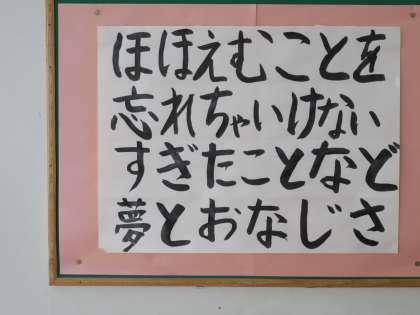 ほほえむことを
忘れちゃいけない
すぎたことなど
夢とおなじさ